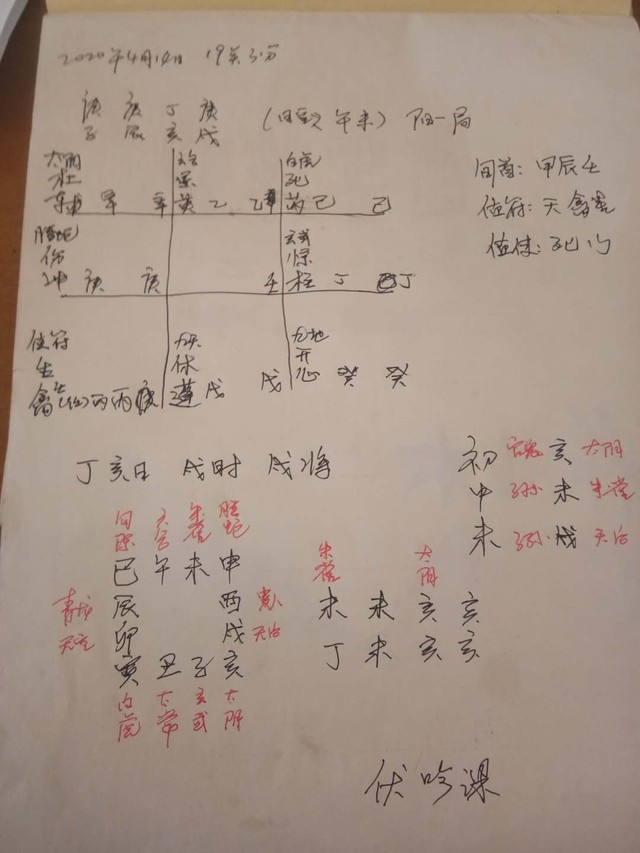 2020年4月14日 19点31分
庚 庚 丁 庚
子 辰 亥 戌
(日空 午未) 阳一局
太阴 六合 白虎
杜 景 死
辅 辛 辛 英 乙 乙 芮 己 己
旬首：甲辰壬
值符：天禽星
值使：死门
腾蛇 玄武
伤 惊
冲 庚 庚 壬 柱 丁 丁
值符 九天 九地
生 休 开
禽 任 丙 丙 蓬 戊 戊 心 癸 癸
丁亥日 戌时 戌将
初 官鬼 亥 太阴
中 子孙 未 朱雀
末 子孙 戌 天后
勾陈 六合 朱雀 腾蛇
巳 午 未 申
青龙 辰 酉 贵人
天空 卯 戌 天后
寅 丑 子 亥
白虎 太常 玄武 太阴
朱雀 太阴
未 未 亥 亥
丁 未 亥 亥
伏吟课